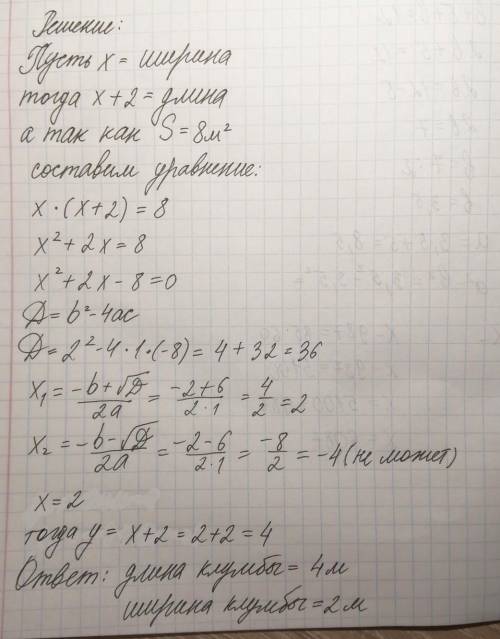 Решение:
Пусть x = ширина
тогда x + 2 = длина
а так как S = 8м²
составим уравнение:
x · (x + 2) = 8
x² + 2x = 8
x² + 2x - 8 = 0
D = b² - 4ac
D = 2² - 4 · 1 · (-8) = 4 + 32 = 36
x₁ = (-b + √D)/2a = (-2 + 6)/(2 · 1) = 4/2 = 2
x₂ = (-b - √D)/2a = (-2 - 6)/(2 · 1) = -8/2 = -4 (не может)
x = 2
тогда y = x + 2 = 2 + 2 = 4
Ответ: длина клумбы = 4м
ширина клумбы = 2м